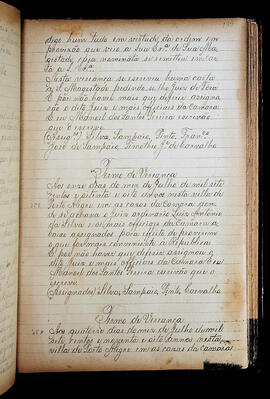 dias hum tudo em virtude da ordem ou
provisão que veio a Sua Ex.ª de Sua Ma
gestade cuja nominata se remettia em car
ta a S. Ex.ª
Nesta veriança se escreveu huma carta
a S. Magestade pedindo-se lhe Juiz de Fora
E por não haver mais que deferir assigna
rão o dito Juiz e mais officiaes da Camara
E eu Manoel dos Santos Pereira escrivão
que o escrevi
(Assig.) Silva, Sampaio, Pinto, Fran.co
José de Sampaio, Timotheo J.e de Carvalho
Termo de Veriança
Aos onze dias do mez de Julho de mil sete
centos e oitenta e oito annos nesta villa de
Porto Alegre em as casas da Camara aon
de se achava o Juiz ordinario Luis Antonio
da Silva e os mais officiaes da Camara a
baixo assignados para effeito de proverem
o que fosse mais conveniente á Republica
E por não haver que deferir assignou o
dito Juiz e mais officiaes da Camara E eu
Manoel dos Santos Pereira escrivão que o
escrevi
(Assignados) Silva, Sampaio, Pinto, Carvalho
Termo de Veriança
Aos quatorze dias do mez de Julho de mil
sete centos e noventa e oito annos nesta
villa de Porto Alegre em as casas da Camara